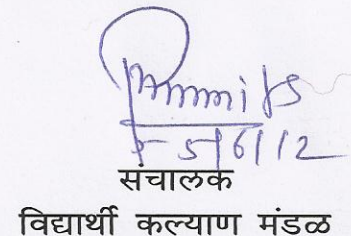 5/6/12
संचालक
विद्यार्थी कल्याण मंडळ